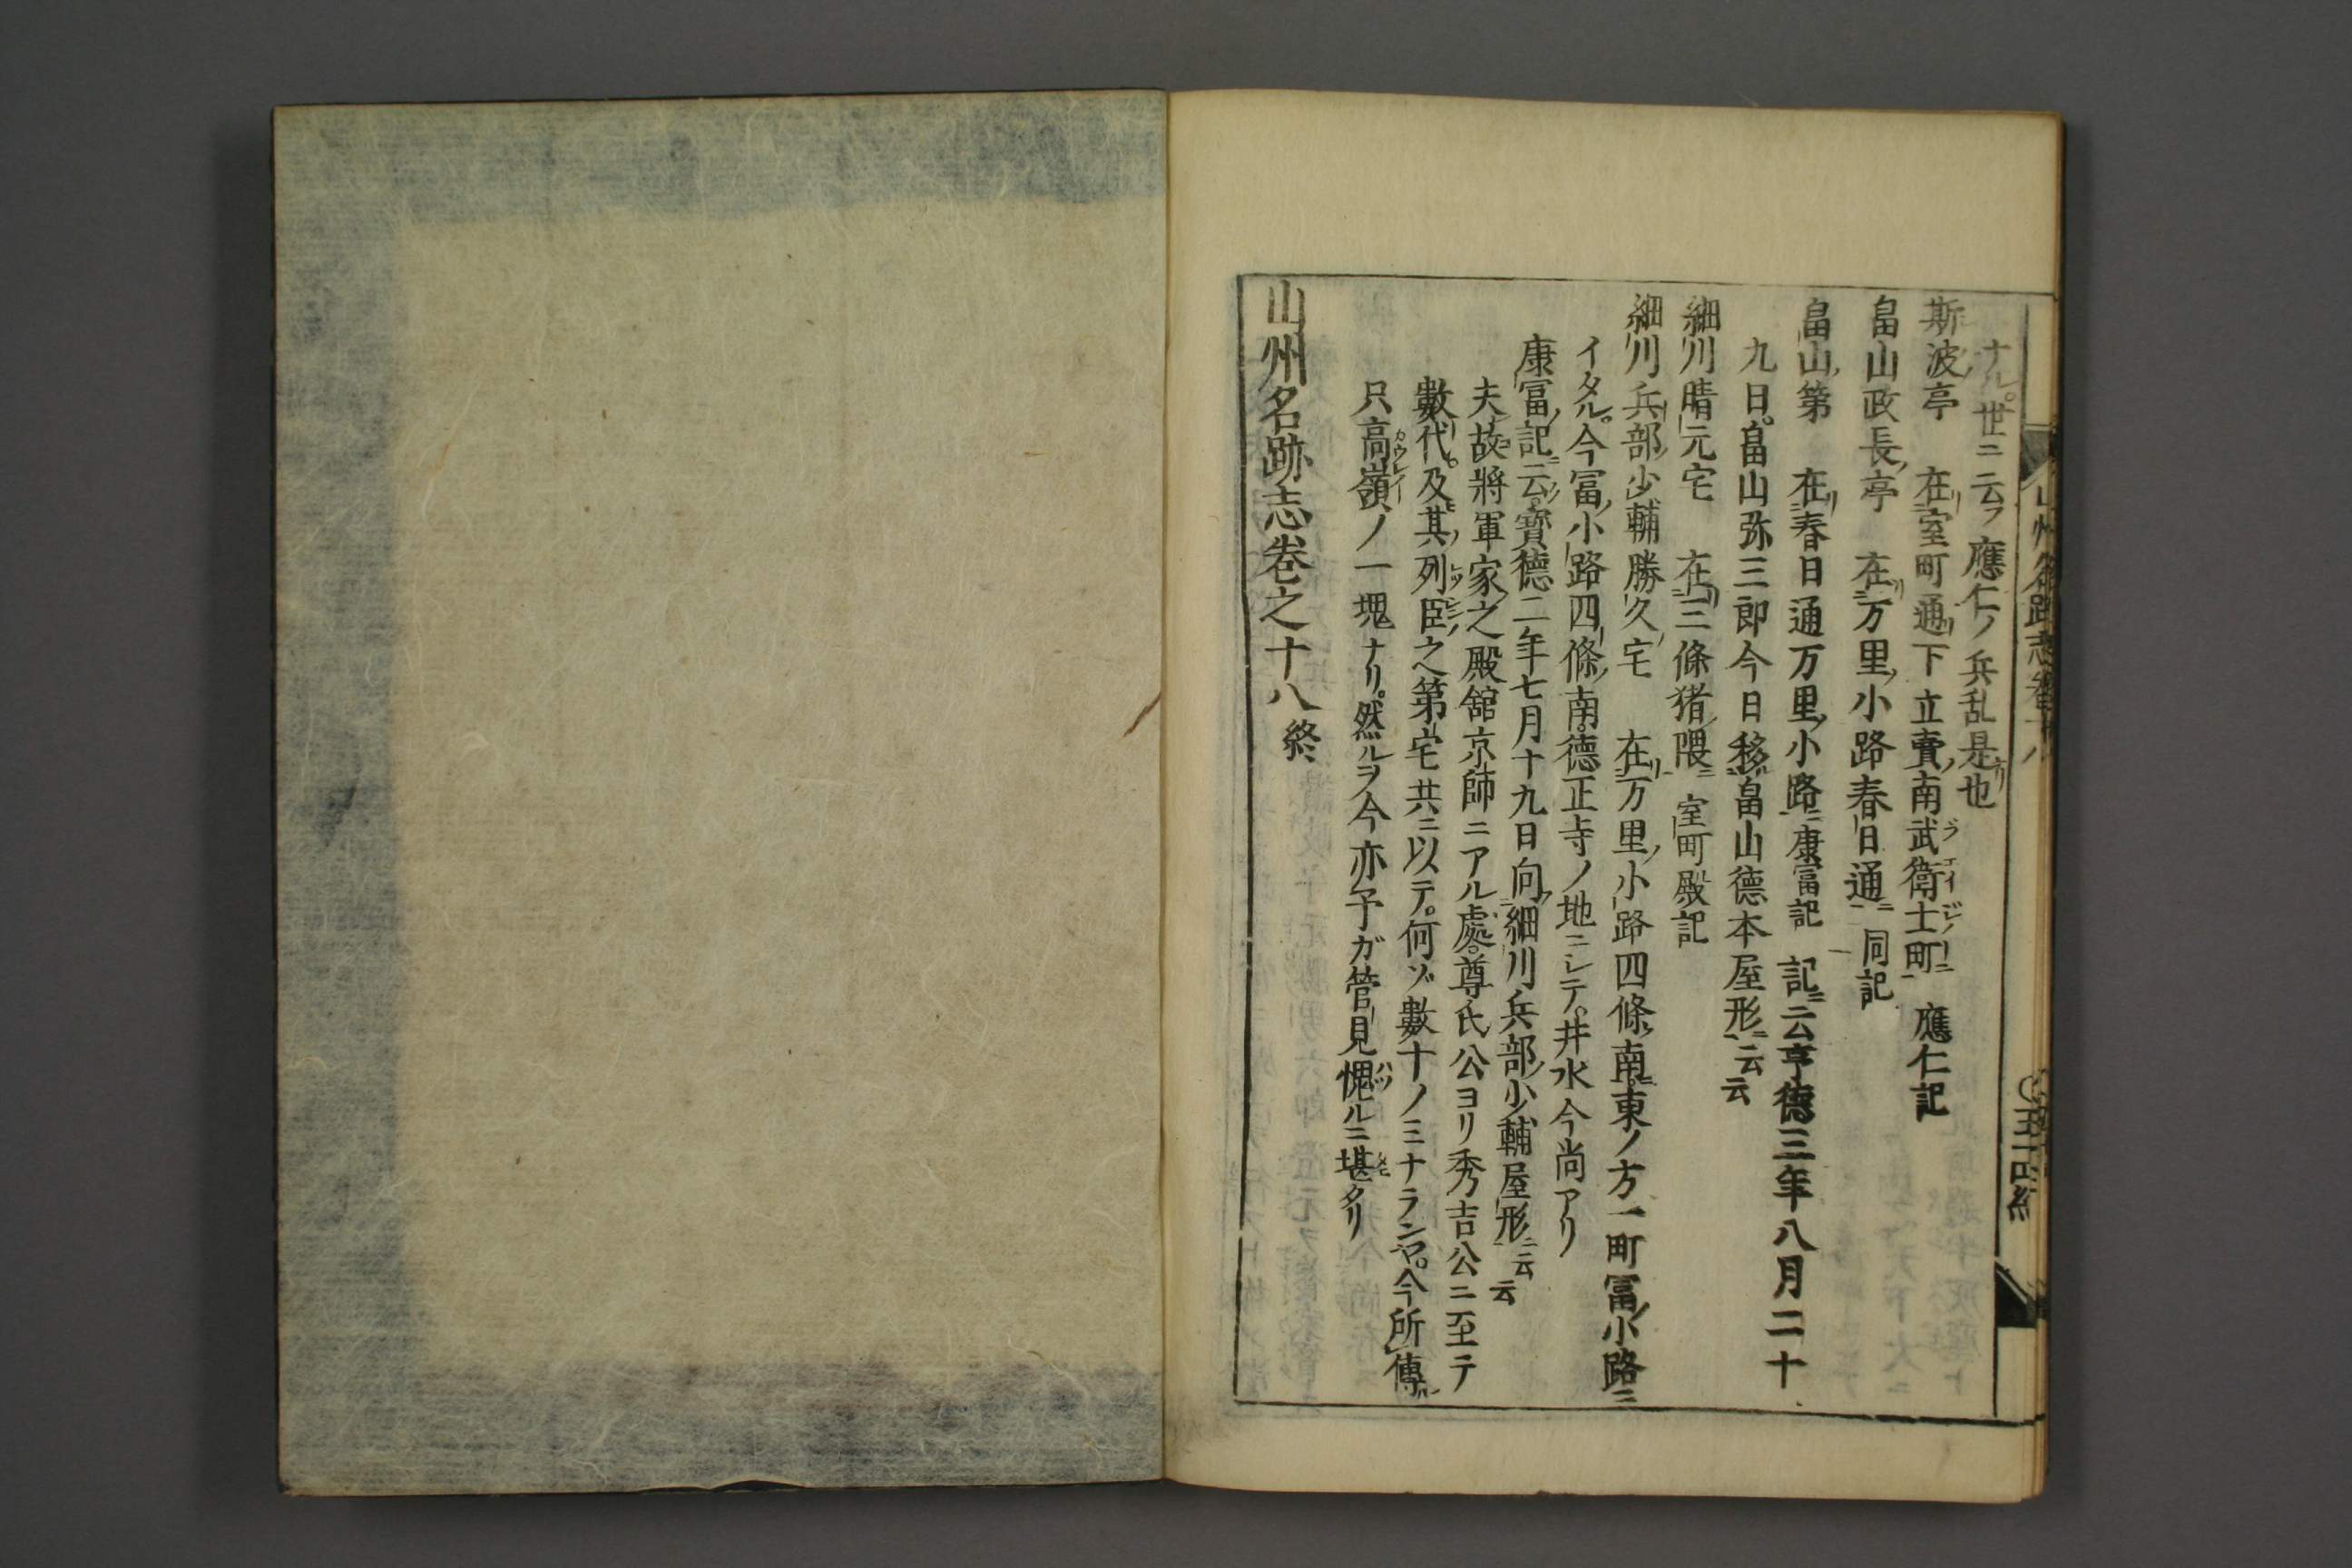 ナル。世ニ云フ應仁ノ兵乱是也
斯波亭　在室町通下立賣南武衛士町　應仁記
畠山政長亭　在万里小路春日通　同記
畠山第　在春日通万里小路康富記　記ニ云亨德三年八月二十
九日。畠山弥三郎今日移畠山德本屋形云云
細川晴元宅　在三條猪隈　室町殿記
細川兵部少輔勝久宅　在万里小路四條南東ノ方一町冨小路ニ
イタル。今冨小路四條南德正寺ノ地ニシテ。井水今尚アリ
康冨記云寶德二年七月十九日向細川兵部少輔屋形云云
夫故將軍家之殿舘京師ニアル處。尊氏公ヨリ秀吉公ニ至テ
數代。及其列臣之第宅共ニ以テ。何ゾ數十ノミナランヤ。今所傳
只高嶺ノ一塊ナリ。然ルヲ今亦予ガ管見愧ルニ堪タリ
山州名跡志巻之十八終
山州名跡志巻十八